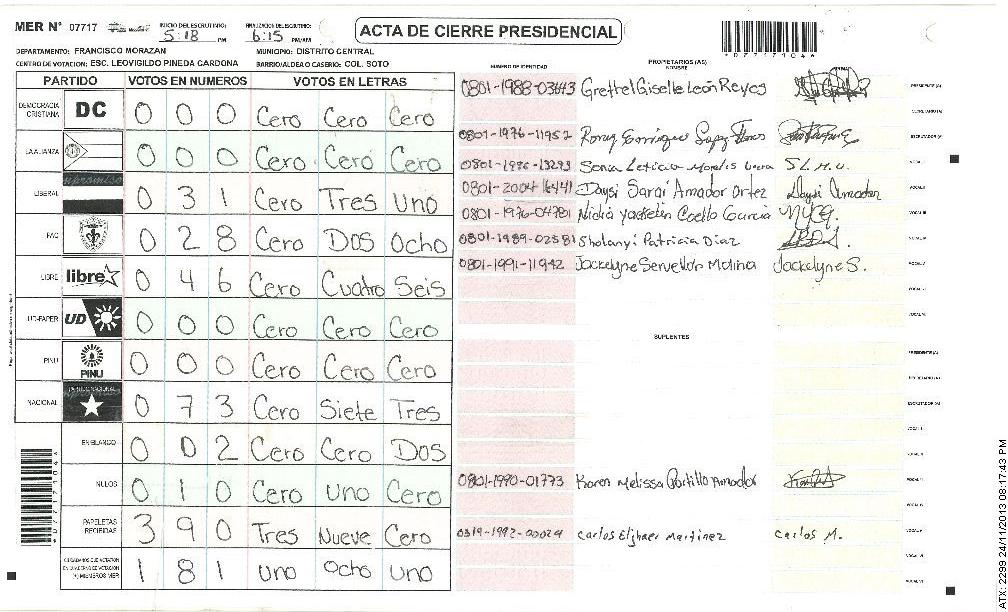 MER N° 07717 INICIO DEL ESCRUTINIO: 5:18 PM FINALIZACION DEL ESCRUTINIO: 6:15 PM/AM
ACTA DE CIERRE PRESIDENCIAL
*07717104*
DEPARTAMENTO: FRANCISCO MORAZAN MUNICIPIO: DISTRITO CENTRAL
CENTRO DE VOTACION: ESC. LEOVIGILDO PINEDA CARDONA BARRIO/ALDEA O CASERIO: COL. SOTO
PARTIDO VOTOS EN NUMEROS VOTOS EN LETRAS
DEMOCRACIA CRISTIANA DC 0 0 0 Cero Cero Cero
LA ALIANZA 0 0 0 Cero Cero Cero
LIBERAL 0 3 1 Cero Tres Uno
PAC 0 2 8 Cero Dos Ocho
LIBRE libre 0 4 6 Cero Cuatro Seis
UD-FAPER UD 0 0 0 Cero Cero Cero
PINU PINU 0 0 0 Cero Cero Cero
NACIONAL 0 7 3 Cero Siete Tres
EN BLANCO 0 0 2 Cero Cero Dos
NULOS 0 1 0 Cero Uno Cero
PAPELETAS RECIBIDAS 3 9 0 Tres Nueve Cero
CIUDADANOS QUE VOTARON EN CUADERNO DE VOTACION (+) MIEMBROS MER 1 8 1 Uno Ocho Uno
PROPIETARIOS (AS)
NUMERO DE IDENTIDAD NOMBRE
0801-1988-03643 Grettel Giselle León Reyes PRESIDENTE (A)
SECRETARIO (A)
0801-1976-11952 ESCRUTADOR (A)
0801-1986-13293 Sonia Leticia S.L.M.U. VOCAL I
0801-2004-16441 Daysi Sarai Amador Ortez Daysi Amador VOCAL II
0801-1976-04781 Nidia Yackelin Coello Garcia VOCAL III
0801-1989-02581 Sholanyi Patricia Diaz VOCAL IV
0801-1991-11942 Jackelyne Servellón Molina Jackelyne S. VOCAL V
VOCAL VI
VOCAL VII
SUPLENTES
PRESIDENTE (A)
SECRETARIO (A)
ESCRUTADOR (A)
VOCAL I
VOCAL II
0801-1990-01773 Karen Melissa Portillo Amador
0319-1992-00024 Carlos Martinez Carlos M.
VOCAL VI
VOCAL VII
*07717104*
ATX: 2299 24/11/2013 08:17:43 PM